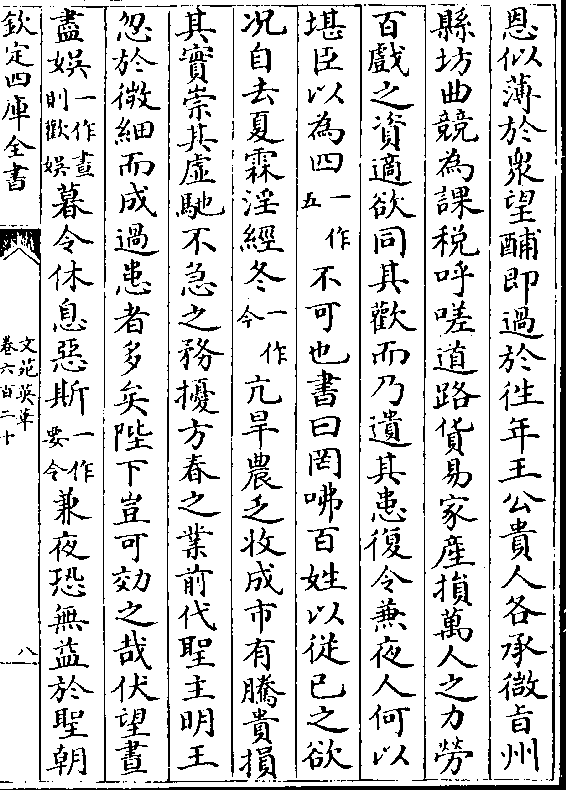 恩似薄於衆望酺即過於徃年王公貴人各承微㫖州
縣坊曲競為課税呼嗟道路貨易家産損萬人之力勞
百戲之資適欲同其歡而乃遺其患復令兼夜人何以
堪臣以為四一作五不可也書曰罔咈百姓以從已之欲
况自去夏霖淫經冬一作今亢旱農乏收成市有騰貴損
其實崇其虛馳不急之務擾方春之業前代聖主明王
忽於微細而成過患者多矣陛下豈可效之哉伏望晝
盡娛一作晝則歡娛暮令休息惡斯一作要令兼夜恐無益於聖朝
欽定四庫全書
文苑英華
卷六百二十
八